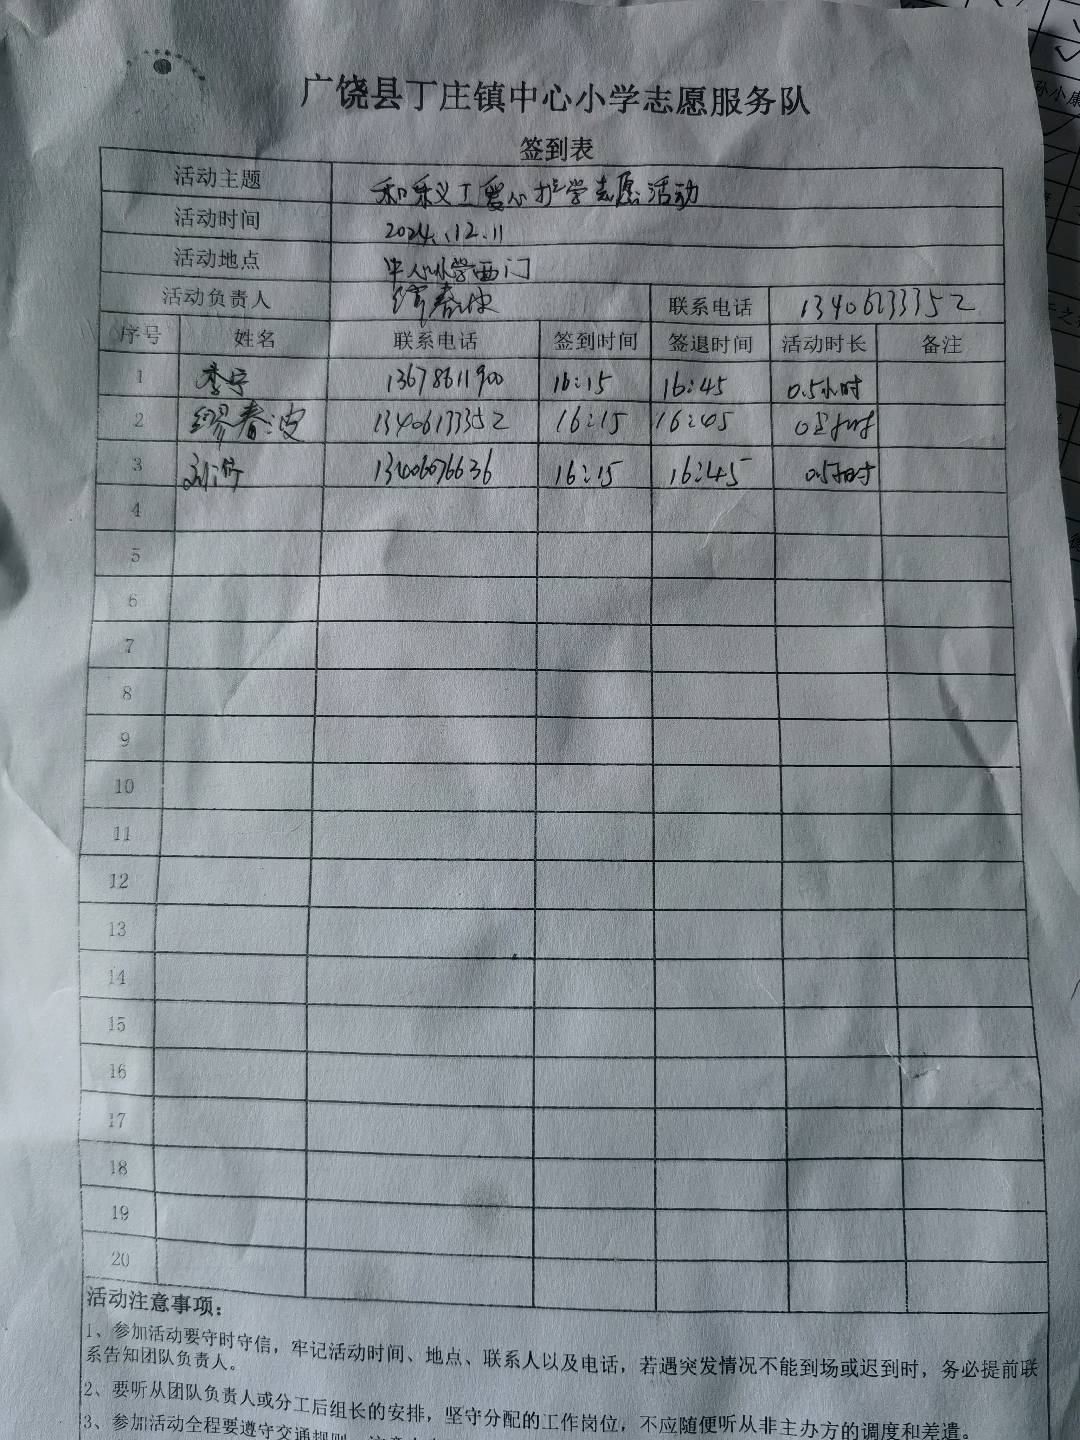 广饶县丁庄镇中心小学志愿服务队
签到表
活动主题 和彩义工爱心护学志愿活动
活动时间 2024.12.11
活动地点 中心小学西门
活动负责人 缪春波 联系电话 13406133352
序号 姓名 联系电话 签到时间 签退时间 活动时长 备注
1 李宁 13678611900 16:15 16:45 0.5小时
2 缪春波 13406133352 16:15 16:45 0.5小时
3 13406076636 16:15 16:45 0.5小时
4
5
6
7
8
9
10
11
12
13
14
15
16
17
18
19
20
活动注意事项：
1、参加活动要守时守信，牢记活动时间、地点、联系人以及电话，若遇突发情况不能到场或迟到时，务必提前联
系告知团队负责人。
2、要听从团队负责人或分工后组长的安排，坚守分配的工作岗位，不应随便听从非主办方的调度和差遣。
3、参加活动全程要遵守交通规则
孙小康